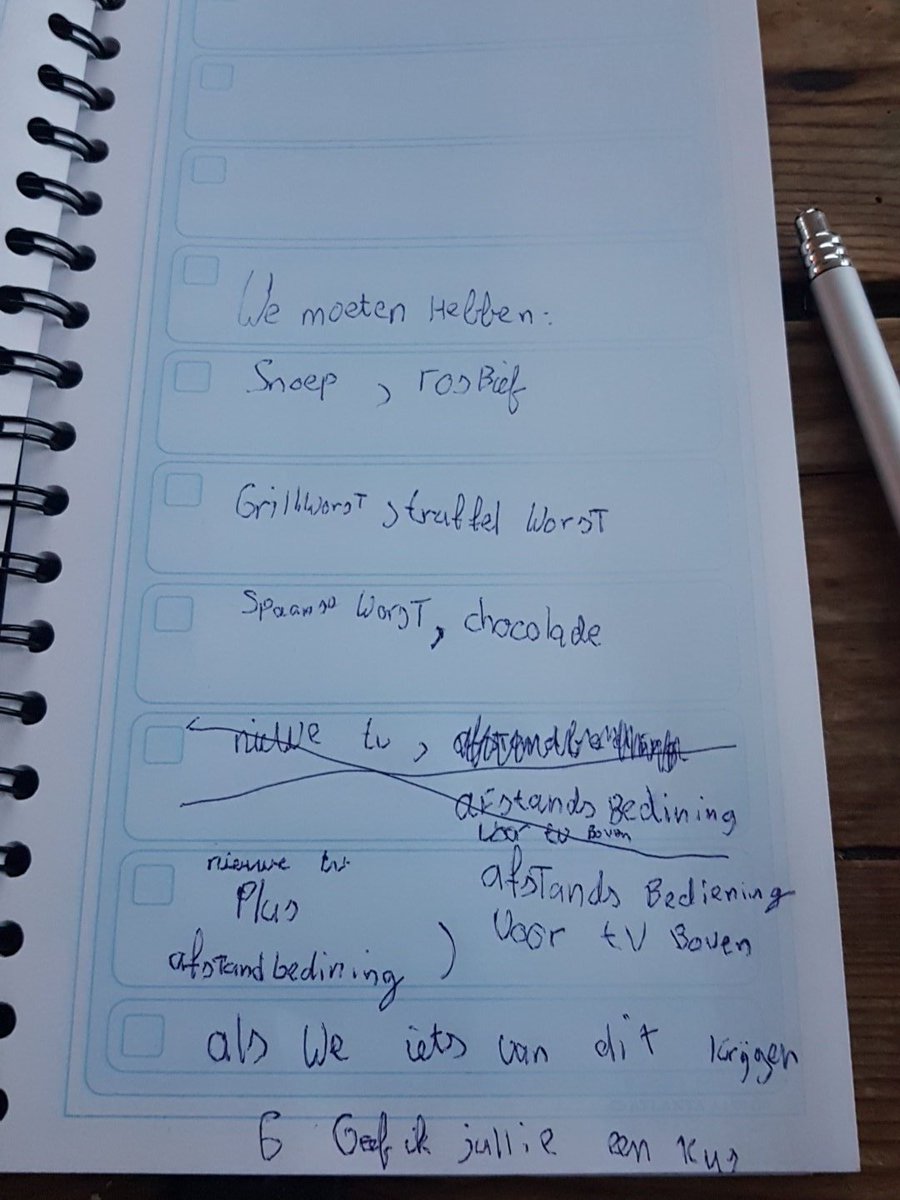 We moeten Hebben:
Snoep , rosBief
Grillworst , truffel worst
Spaanse worst, chocolade
nieuwe tv ,
afstands Bedining
voor tv Boven
nieuwe tv
Plus
afstandbedining )
afstands Bediening
voor tv Boven
als We iets van dit krijgen
Geef ik jullie een kus